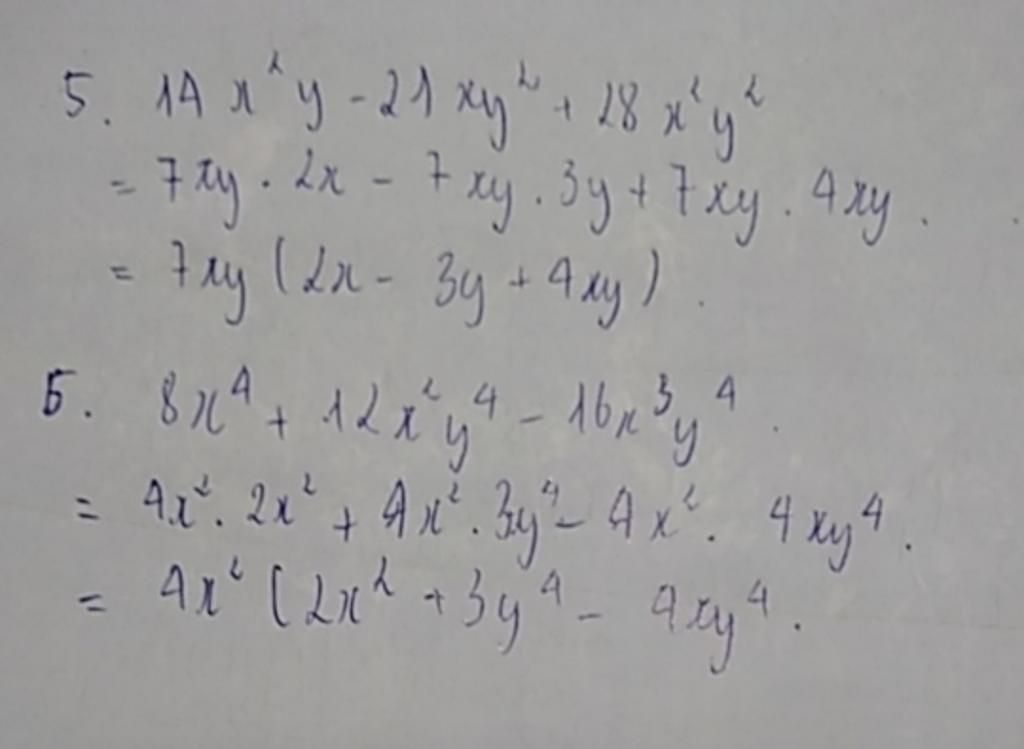 5. 14x²y - 21xy² + 28x²y²
= 7xy . 2x - 7xy . 3y + 7xy . 4xy .
= 7xy (2x - 3y + 4xy) .
5. 8x⁴ + 12x²y⁴ - 16x³y⁴ .
= 4x² . 2x² + 4x² . 3y⁴ - 4x² . 4xy⁴ .
= 4x² (2x² + 3y⁴ - 4xy⁴ .